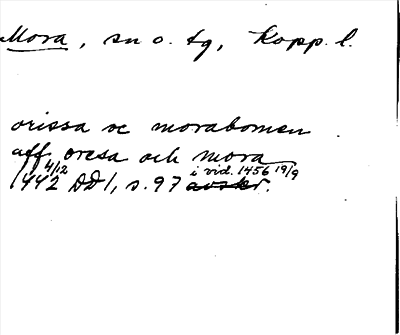 Mora, sn o. tg, Kopp. l.
orissa oc morabomen
aff oresa och mora
1442 4/12 DD 1, s. 97 avskr. i vid. 1456 19/9